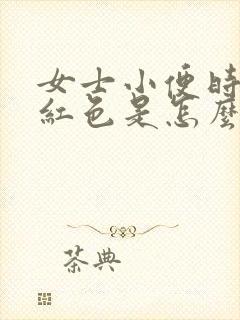 女士小便時
紅色是怎麼
茶典